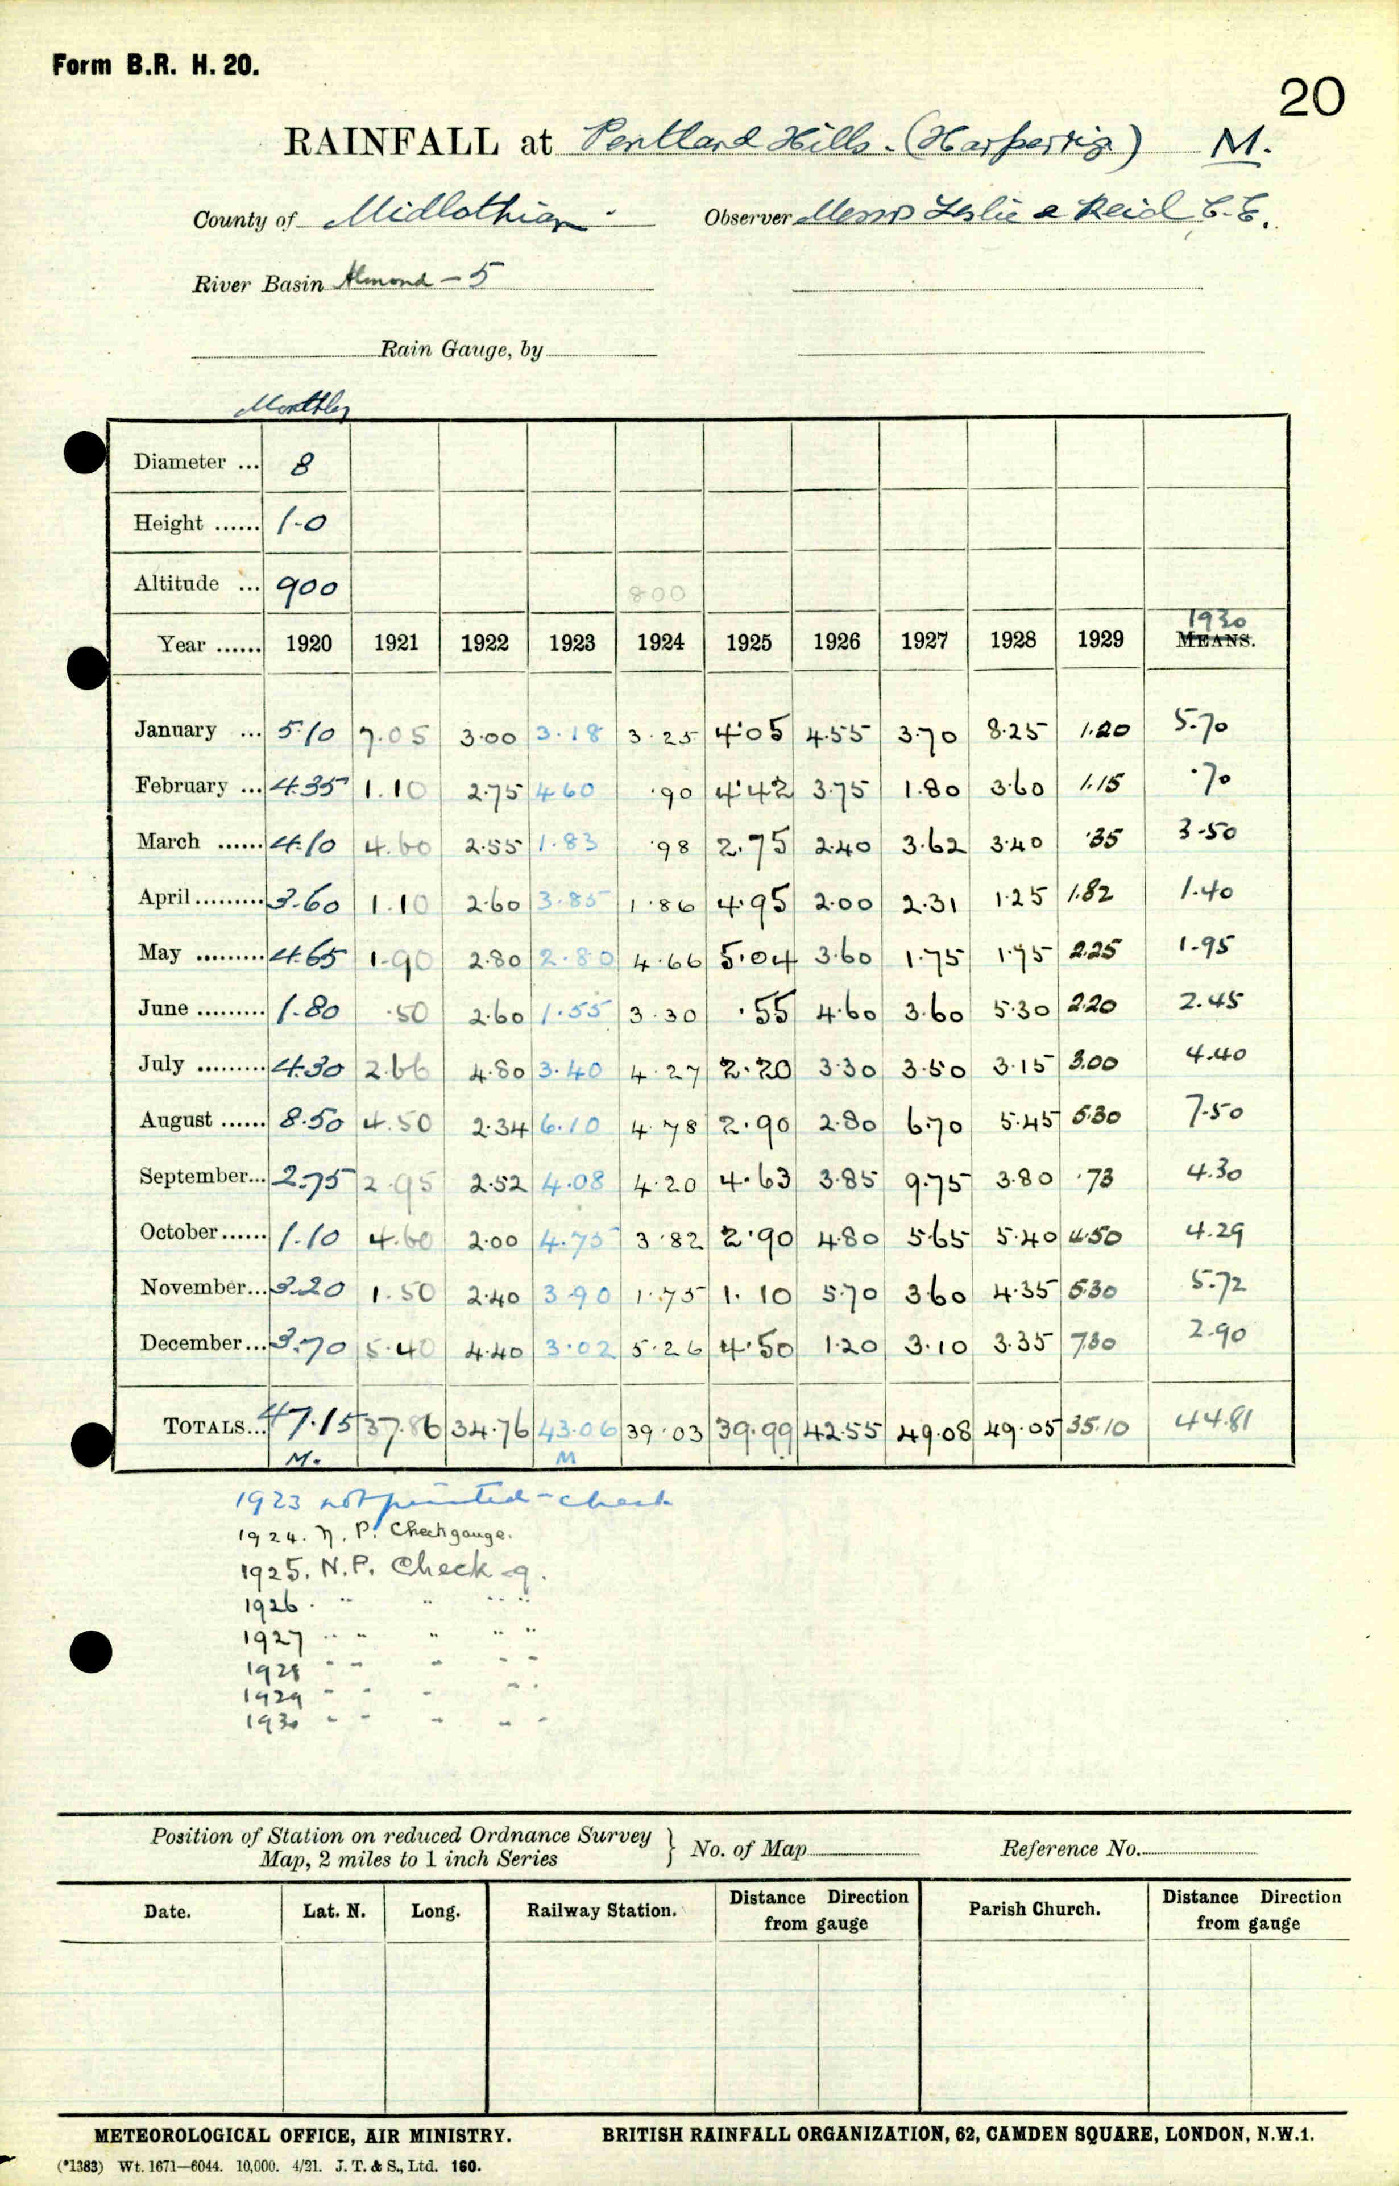 Form B.R. H. 20.
20
RAINFALL at Pentland Hills. (Harperrig) M.
County of Midlothian. Observer Messrs Leslie & Reid C.E.
River Basin Almond - 5
Rain Gauge, by
Monthly
Diameter ... 8
Height ...... 1-0
Altitude ... 900 800
Year ...... 1920 1921 1922 1923 1924 1925 1926 1927 1928 1929 MEANS. 1930
January ... 5.10 7.05 3.00 3.18 3.25 4.05 4.55 3.70 8.25 1.20 5.70
February ... 4.35 1.10 2.75 4.60 .90 4.42 3.75 1.80 3.60 1.15 .70
March ...... 4.10 4.60 2.55 1.83 .98 2.75 2.40 3.62 3.40 .35 3.50
April ......... 3.60 1.10 2.60 3.85 1.86 4.95 2.00 2.31 1.25 1.82 1.40
May ......... 4.65 1.90 2.80 2.80 4.66 5.04 3.60 1.75 1.75 2.25 1.95
June ......... 1.80 .50 2.60 1.55 3.30 .55 4.60 3.60 5.30 2.20 2.45
July ......... 4.30 2.66 4.80 3.40 4.27 2.20 3.30 3.50 3.15 3.00 4.40
August ...... 8.50 4.50 2.34 6.10 4.78 2.90 2.80 6.70 5.45 5.30 7.50
September... 2.75 2.95 2.52 4.08 4.20 4.63 3.85 9.75 3.80 .73 4.30
October ...... 1.10 4.60 2.00 4.75 3.82 2.90 4.80 5.65 5.40 4.50 4.29
November... 3.20 1.50 2.40 3.90 1.75 1.10 5.70 3.60 4.35 5.30 5.72
December ... 3.70 5.40 4.40 3.02 5.26 4.50 1.20 3.10 3.35 7.30 2.90
TOTALS... 47.15 37.86 34.76 43.06 39.03 39.99 42.55 49.08 49.05 35.10 44.81
M. M
1923 not printed - check
1924. N. P. Check gauge.
1925. N.P. Check g.
1926. " " " "
1927 " " " " "
1928 " " " " "
1929 " " " "
1930 " " " " "
Position of Station on reduced Ordnance Survey
Map, 2 miles to 1 inch Series } No. of Map Reference No.
Date. Lat. N. Long. Railway Station. Distance Direction from gauge Parish Church. Distance Direction from gauge
METEOROLOGICAL OFFICE, AIR MINISTRY. BRITISH RAINFALL ORGANIZATION, 62, CAMDEN SQUARE, LONDON, N.W.1.
(*1383) Wt. 1671—6044. 10,000. 4/21. J. T. & S., Ltd. 160.